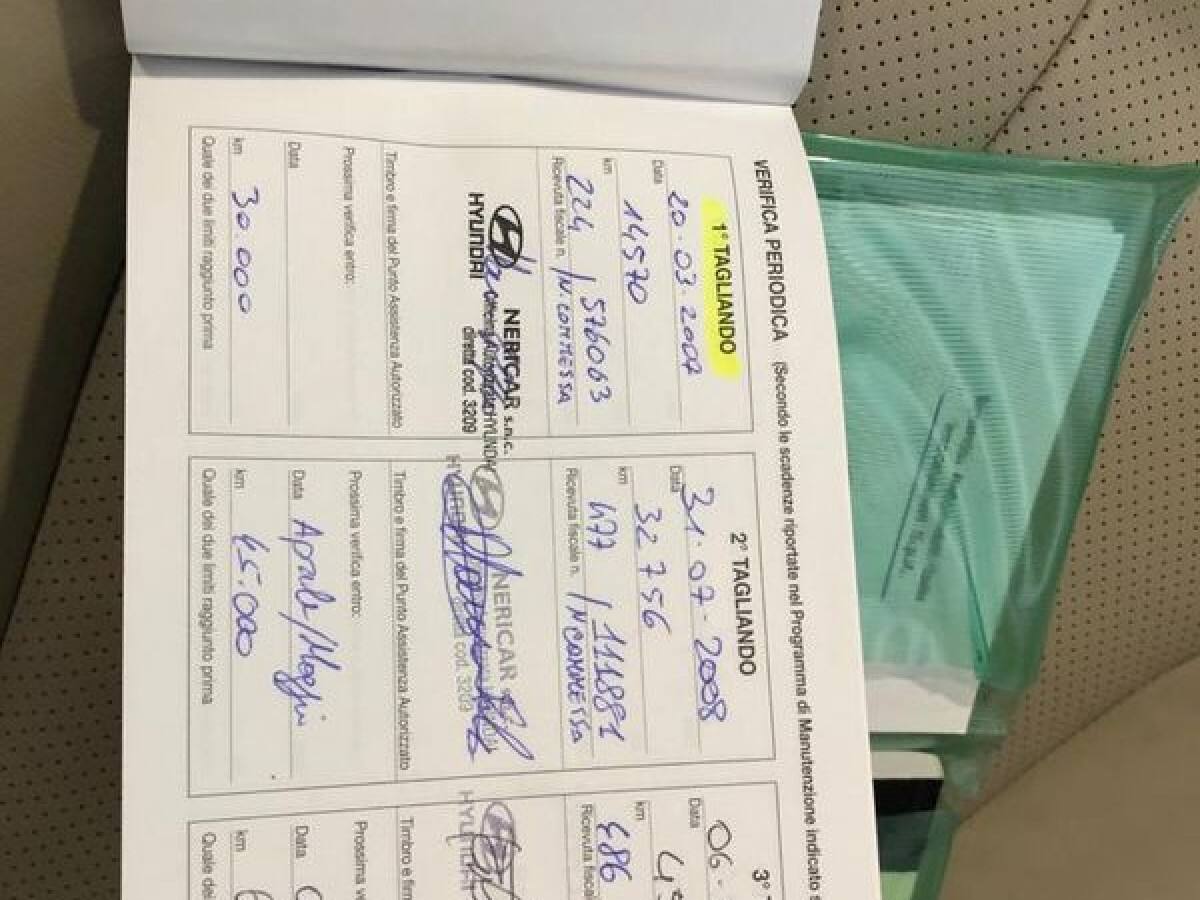 VERIFICA PERIODICA (Secondo le scadenze riportate nel Programma di Manutenzione indicato
1° TAGLIANDO
Data 20.03.2007
km 14570
Ricevuta fiscale n. 224 / 576063
/N. COMMESSA
HYUNDAI
NERICAR s.n.c.
HYUNDAI
diretta cod. 3209
Timbro e firma del Punto Assistenza Autorizzato
Prossima verifica entro:
Data
km 30.000
Quale dei due limiti raggiunto prima
2° TAGLIANDO
Data 31.07-2008
km 32756
Ricevuta fiscale n. 477 / 111881
/N COMMESSA
NERICAR
cod. 3209
Timbro e firma del Punto Assistenza Autorizzato
Prossima verifica entro:
Data Aprile/Maggio
km 45.000
Quale dei due limiti raggiunto prima
3°
Data 06.
km 4
Ricevuta fiscal 486
Timbro e firm
Prossima ve
Data
km 6
Quale dei